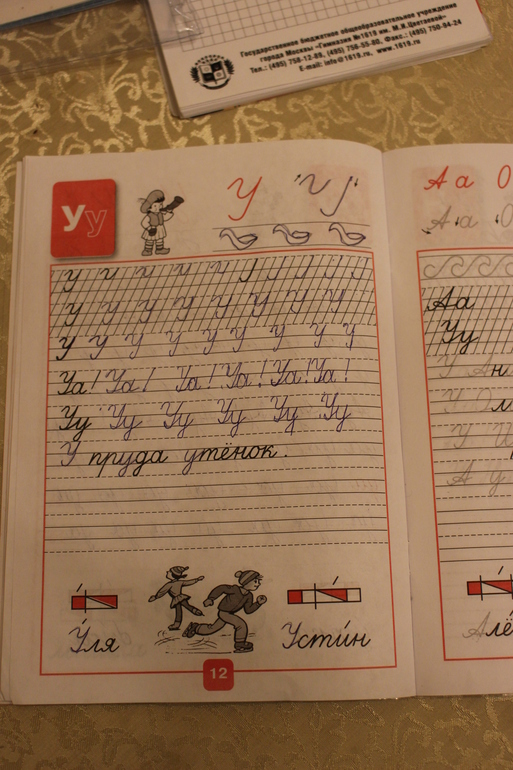 Государственное бюджетное общеобразовательное учреждение
города Москвы «Гимназия №1619 им. М.И.Цветаевой»
Тел.: (495) 756-12-89, (495) 756-55-80. Факс.: (495) 750-94-24
E-mail: info@1619.ru, www.1619.ru
Уу
У
А а О
А а О
у и у у у
у у у у у у у
У У У У У У У У У
Уа! Уа! Уа! Уа! Уа! Уа!
Уу Уу Уу Уу Уу Уу
У пруда утёнок.
Уля
Усти́н
12
Аа
Уу
У
У
У
А у
Алё